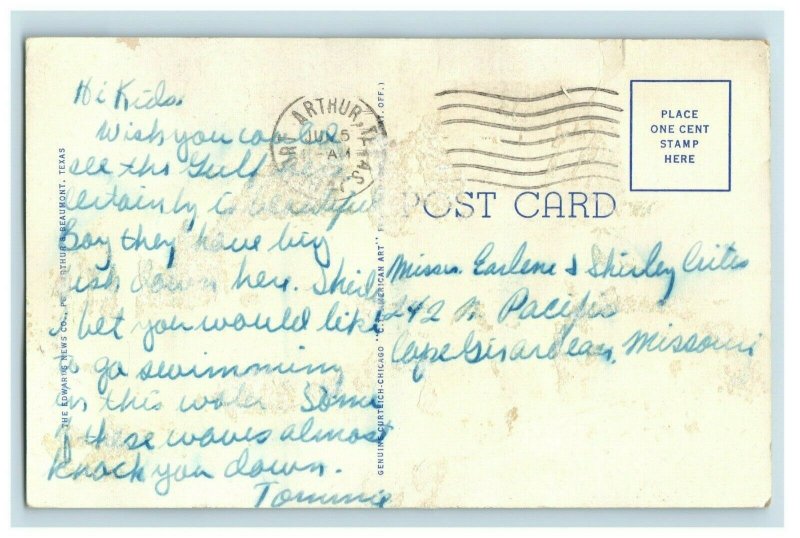 Hi Kids.
Wish you could
see the Gulf
certainly is beautiful
Boy they have big
fish down here.
I bet you would like
to go swimming
in this water. Some
of these waves almost
knock you down.
Tommie
THE EDWARDS NEWS CO., PORT ARTHUR & BEAUMONT, TEXAS
GENUINE CURTEICH-CHICAGO "C.T. AMERICAN ART"
OFF.)
ARTHUR, TEXAS
5
AM
PLACE
ONE CENT
STAMP
HERE
POST CARD
Misses. Earlene & Shirley Crites
242 N Pacific
Cape Girardeau, Missouri